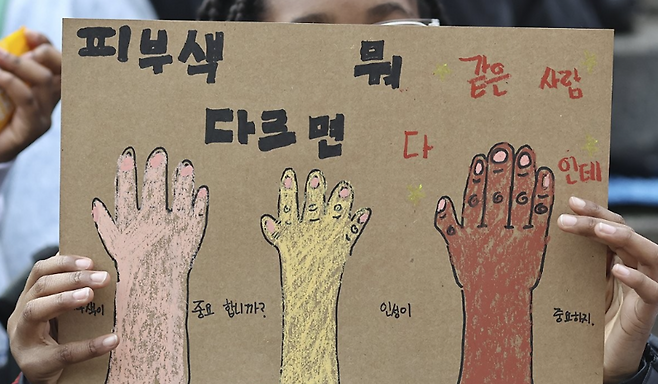 피부색 뭐 같은 사람
다르면 다 인데
중요 합니까? 인성이 중요하지.